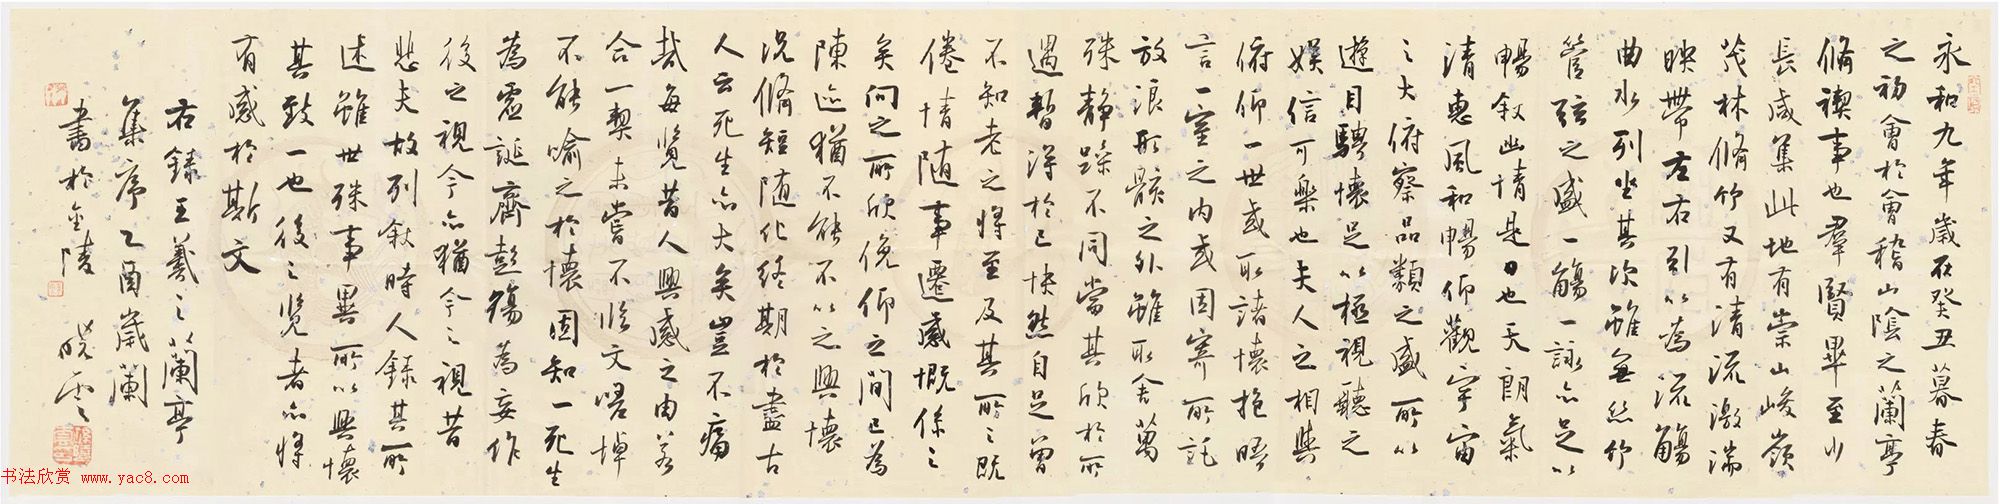 永和九年歲在癸丑暮春
之初會於會稽山陰之蘭亭
脩禊事也羣賢畢至少
長咸集此地有崇山峻嶺
茂林脩竹又有清流激湍
映帶左右引以為流觴
曲水列坐其次雖無絲竹
管弦之盛一觴一詠亦足以
暢敘幽情是日也天朗氣
清惠風和暢仰觀宇宙
之大俯察品類之盛所以
遊目騁懷足以極視聽之
娛信可樂也夫人之相與
俯仰一世或取諸懷抱晤
言一室之内或因寄所託
放浪形骸之外雖取舍萬
殊靜躁不同當其欣於所
遇暫得於己快然自足曾
不知老之將至及其所之既
倦情隨事遷感慨係之
矣向之所欣俛仰之間已為
陳迹猶不能不以之興懷
況脩短隨化終期於盡古
人云死生亦大矣豈不痛
哉每覽昔人興感之由若
合一契未嘗不臨文嗟悼
不能喻之於懷固知一死生
為虛誕齊彭殤為妄作
後之視今亦猶今之視昔
悲夫故列敘時人錄其所
述雖世殊事異所以興懷
其致一也後之覽者亦將
有感於斯文
右錄王羲之蘭亭
集序乙酉歲蘭
書於金陵
曉雲
书法欣赏 www.yac8.com